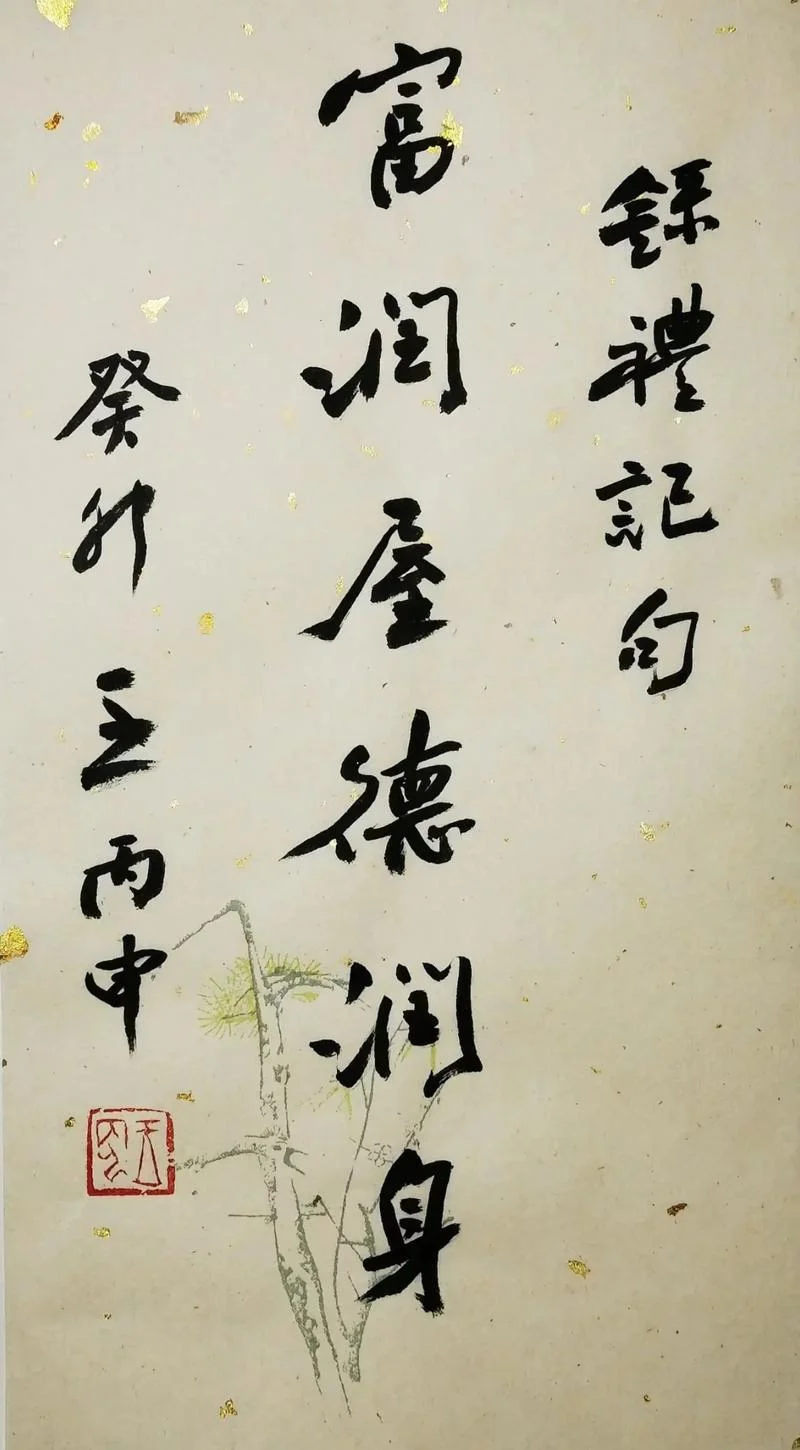 錄禮記句
富润屋德润身
癸卯王丙申